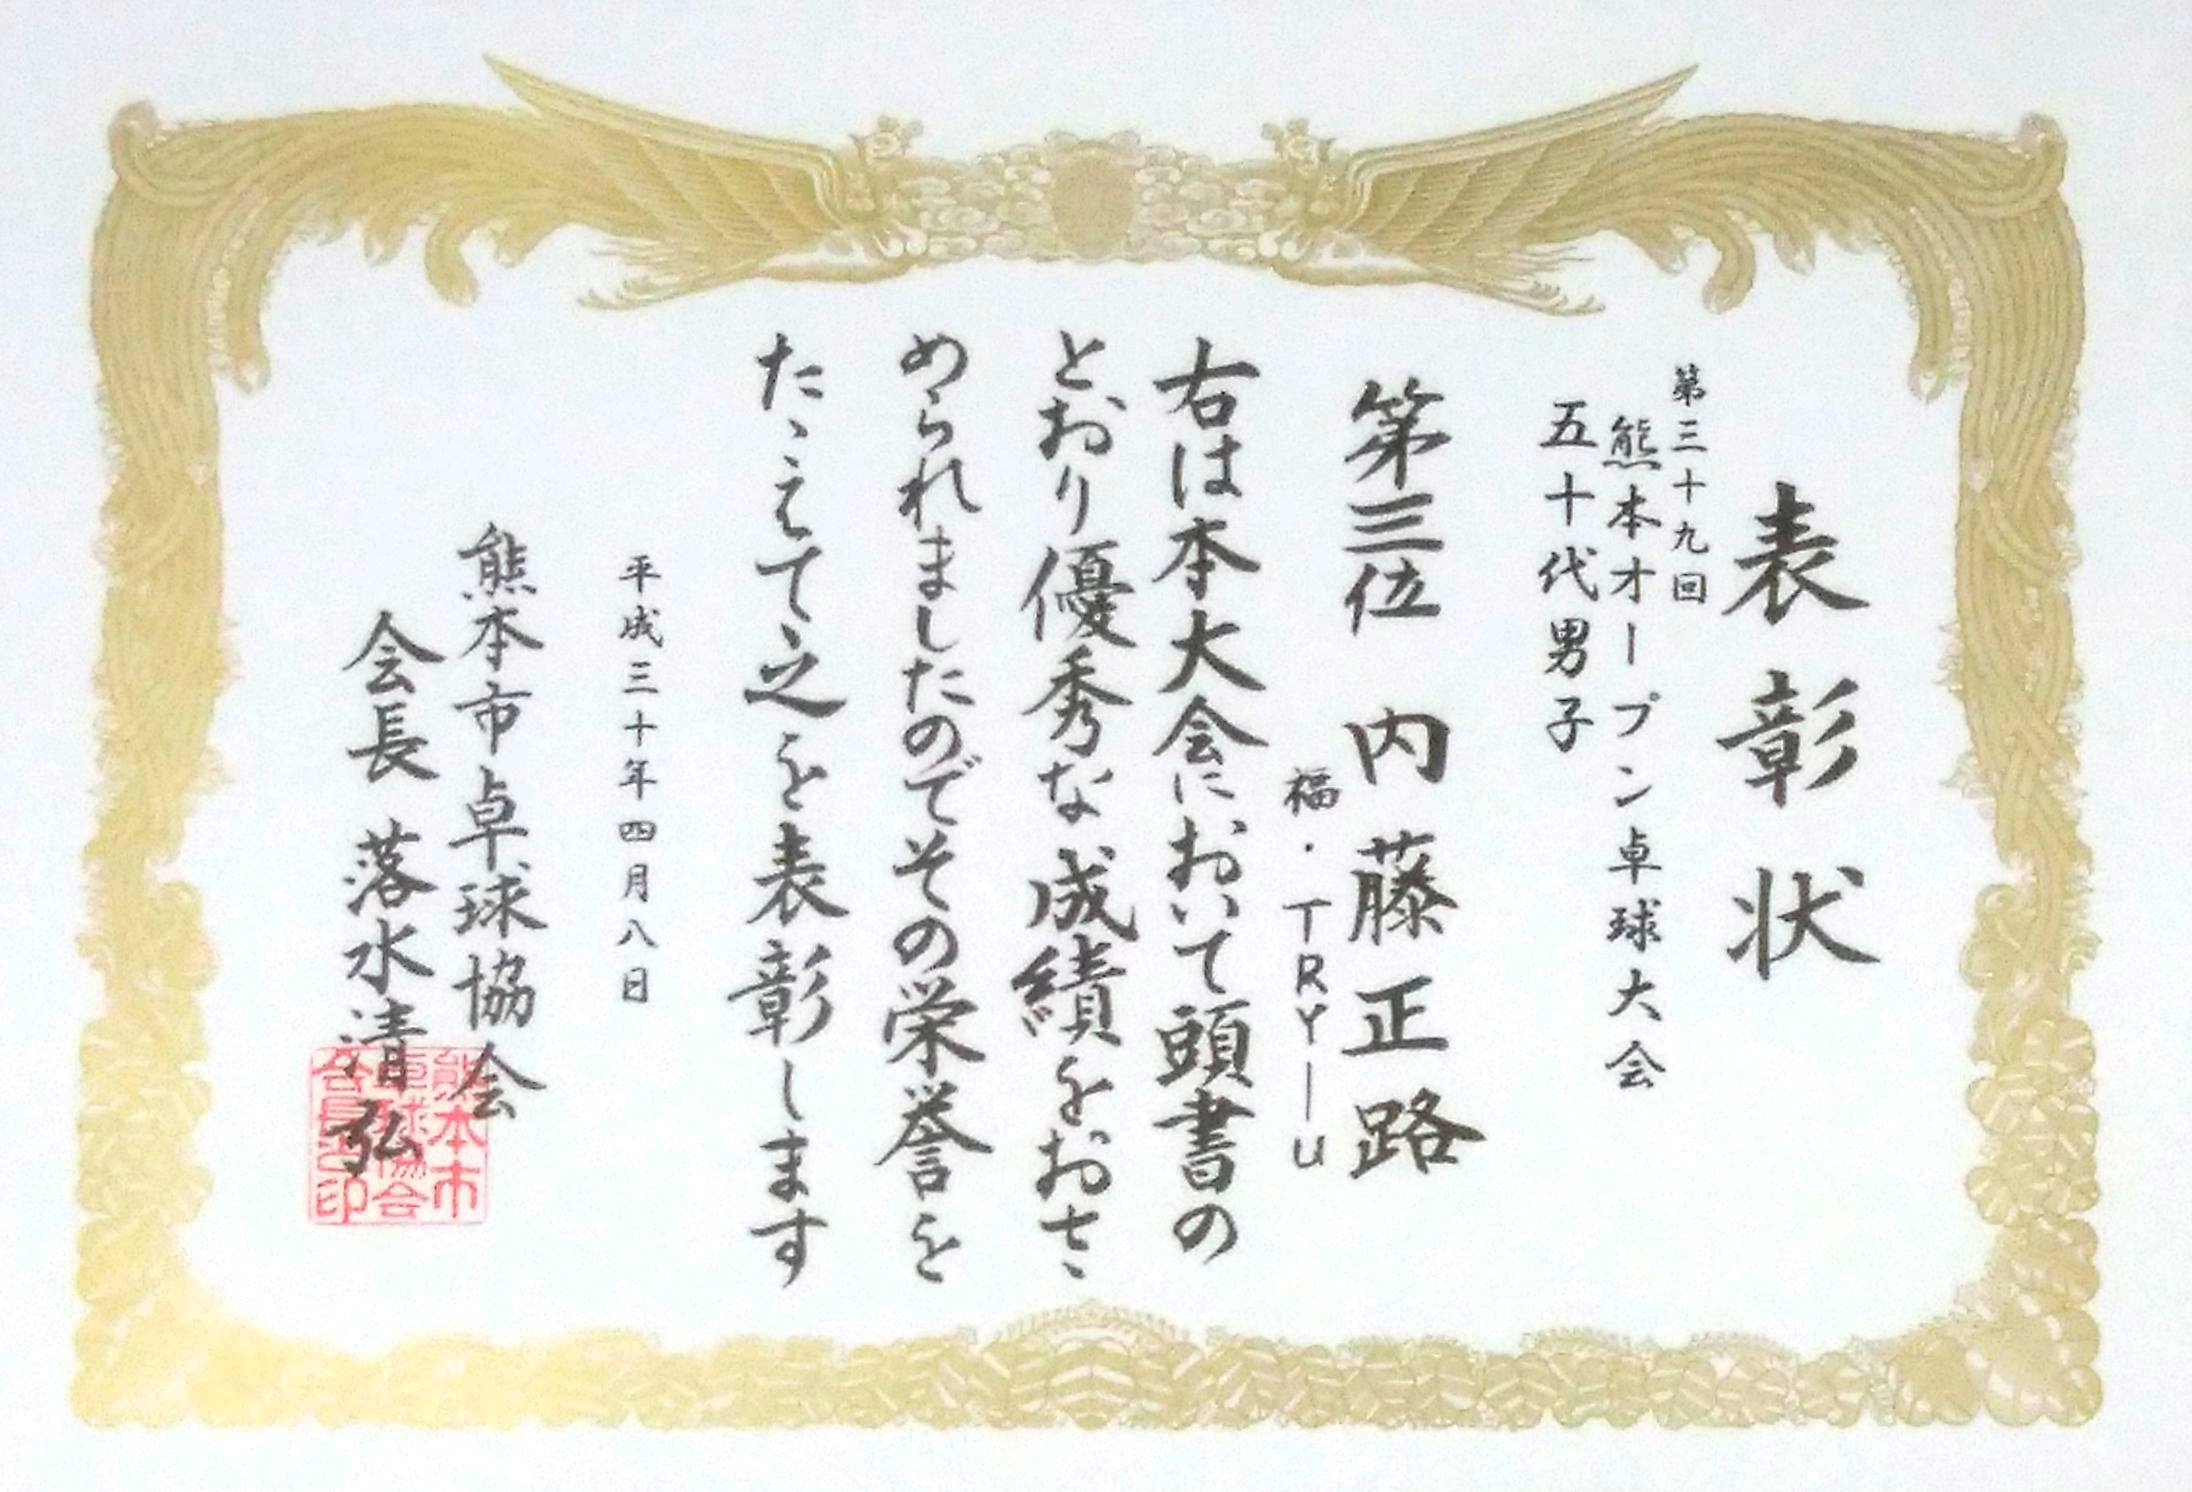 表彰状
第三十九回
熊本オープン卓球大会
五十代男子
第三位 内藤正路
福・TRY―U
右は本大会において頭書の
とおり優秀な成績をおさヽ
められましたのでその栄誉を
たヽえて之を表彰します
平成三十年四月八日
熊本市卓球協会
会長 落水清弘
熊本市
卓球協会
会長之印